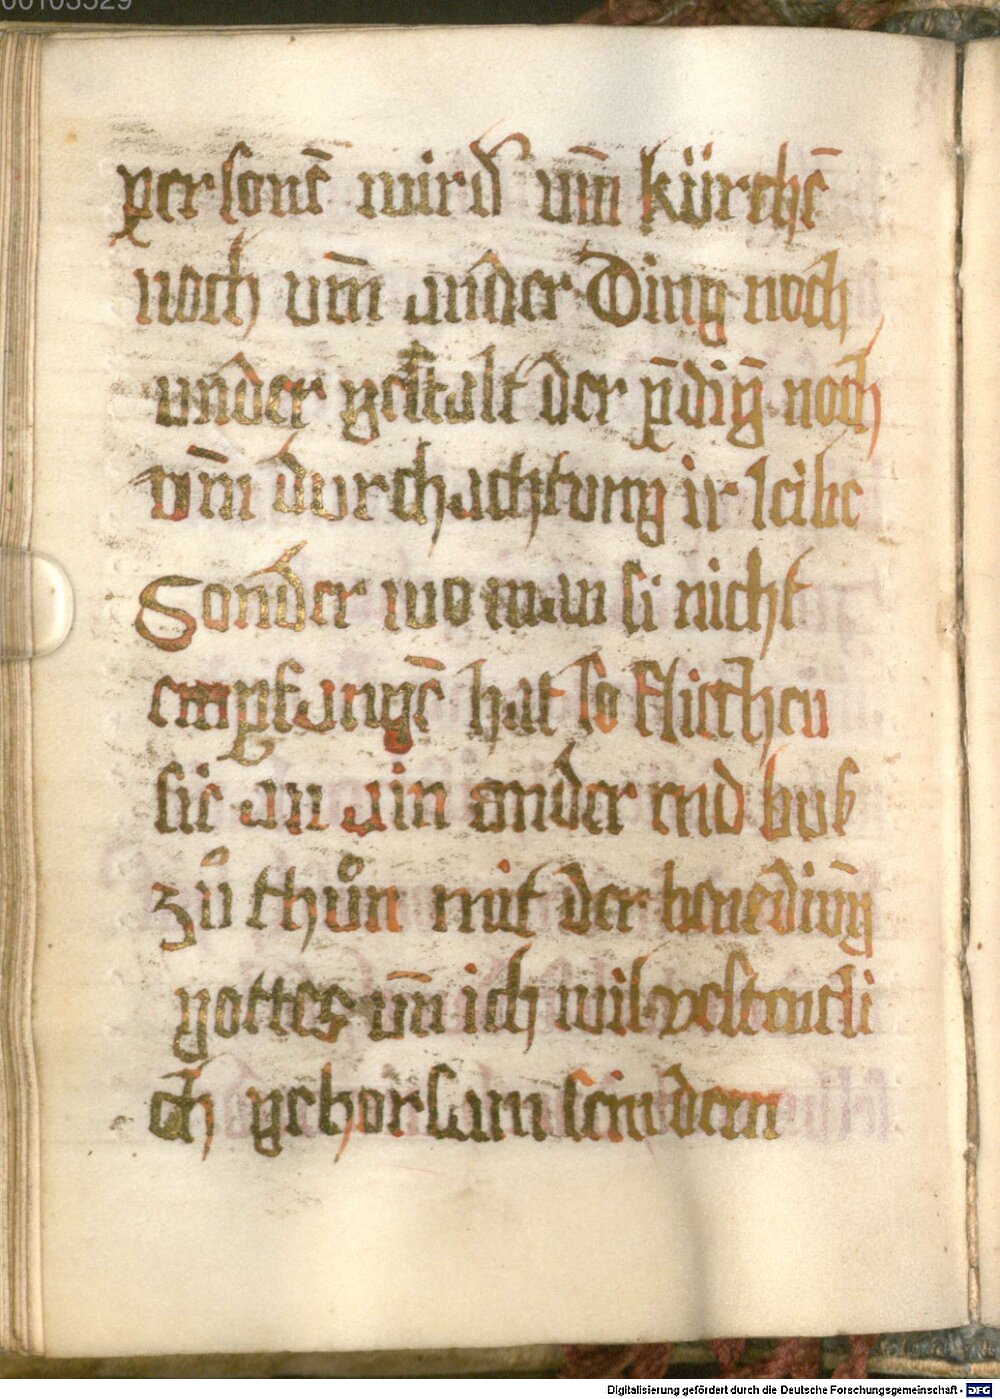 00103529
personē wird vm̄ kürchē
noch vm̄ ander Ding noch
vnder gestalt der p̄diḡ noch
vm̄ durchachtung ir leibe
Sonder wo man si nicht
empfangē hat so fliechen
sie an ain ander end bus
zů thůn mit der benediūg
gottes vn̄ ich wil vestencli
ch gehorsam sein dem
Digitalisierung gefördert durch die Deutsche Forschungsgemeinschaft - DFG